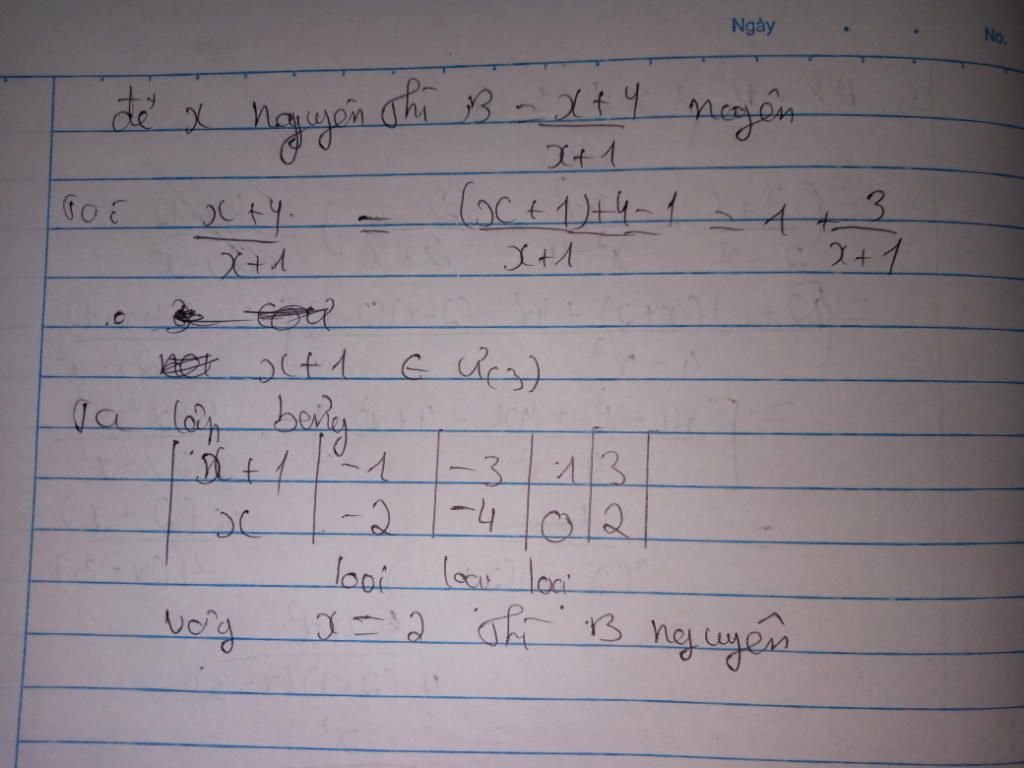 Ngày . . No.
để x nguyên thì B = x+4/x+1 nguyên
x+4/x+1 = (x+1)+4-1/x+1 = 1 + 3/x+1
x+1 ∈ Ư(3)
Ta lập bảng
x+1 | -1 | -3 | 1 | 3
x | -2 | -4 | 0 | 2
loại loại loại
vậy x = 2 thì B nguyên